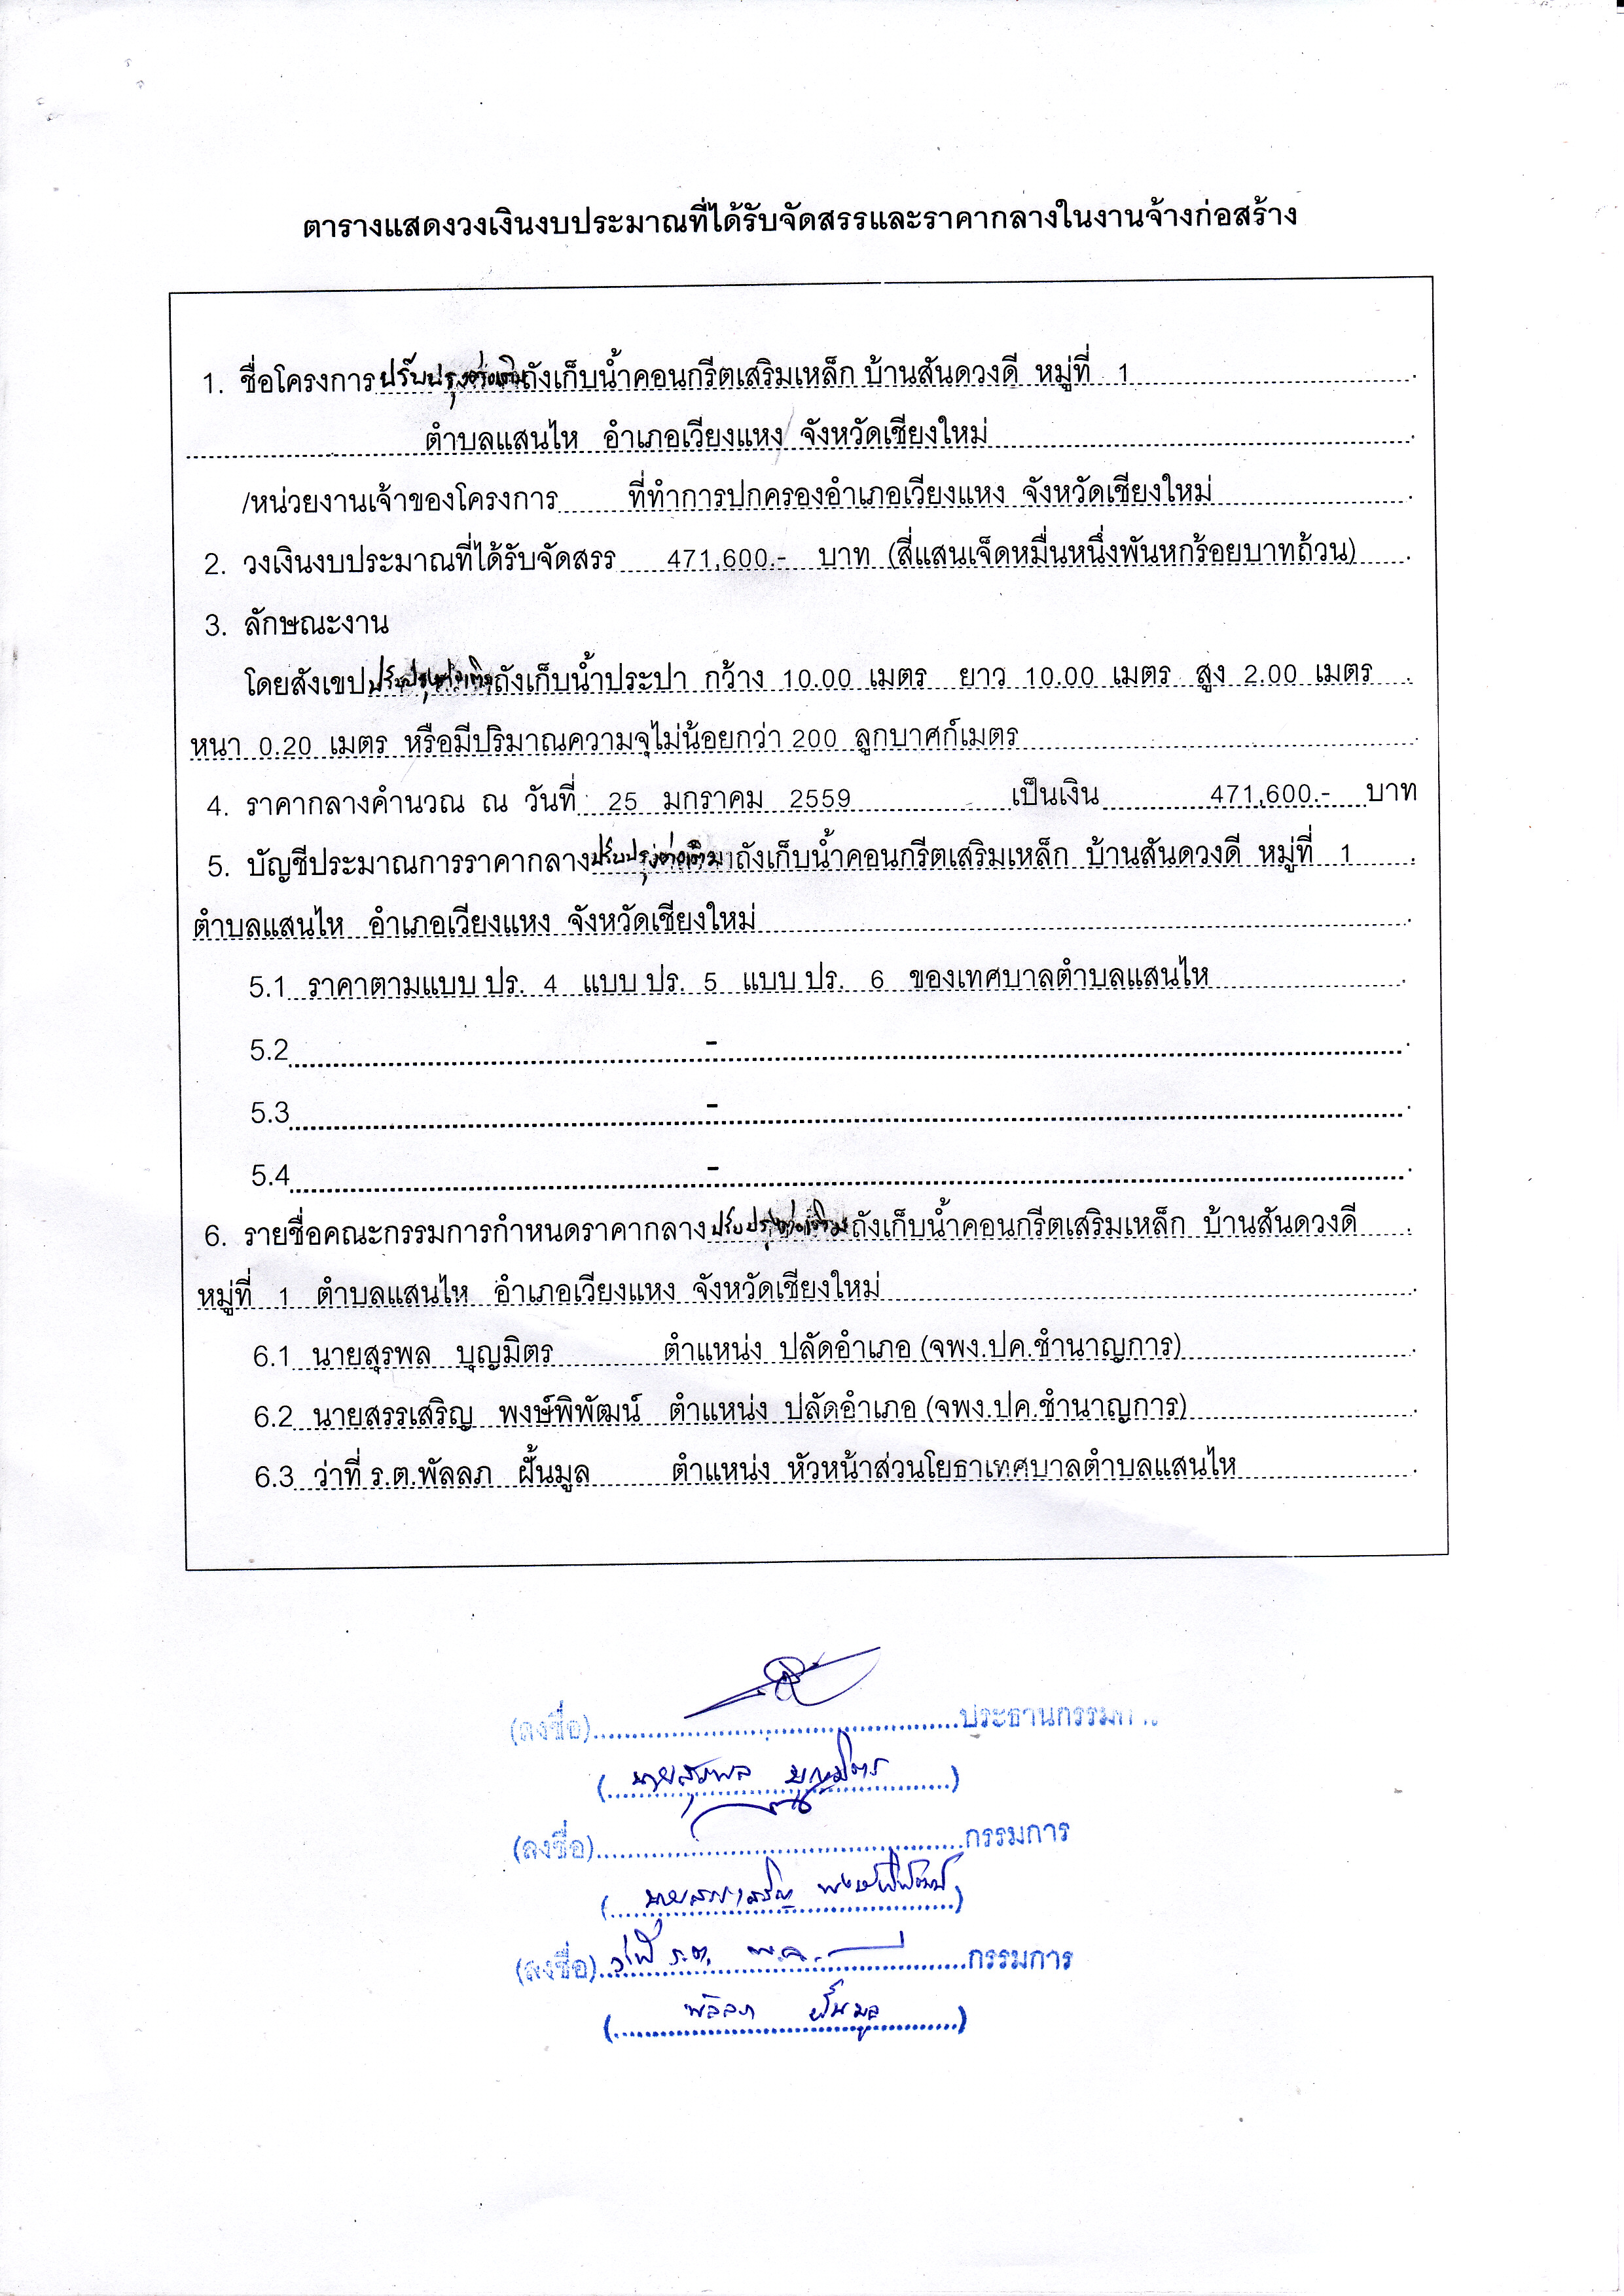 ตารางแสดงวงเงินงบประมาณที่ได้รับจัดสรรและราคากลางในงานจ้างก่อสร้าง
1. ชื่อโครงการปรับปรุงต่อเติมถังเก็บน้ำคอนกรีตเสริมเหล็ก บ้านสันดวงดี หมู่ที่ 1
ตำบลแสนไห อำเภอเวียงแหง จังหวัดเชียงใหม่
/หน่วยงานเจ้าของโครงการ ที่ทำการปกครองอำเภอเวียงแหง จังหวัดเชียงใหม่
2. วงเงินงบประมาณที่ได้รับจัดสรร 471,600.- บาท (สี่แสนเจ็ดหมื่นหนึ่งพันหกร้อยบาทถ้วน)
3. ลักษณะงาน
โดยสังเขปปรับปรุงต่อเติมถังเก็บน้ำประปา กว้าง 10.00 เมตร ยาว 10.00 เมตร สูง 2.00 เมตร
หนา 0.20 เมตร หรือมีปริมาณความจุไม่น้อยกว่า 200 ลูกบาศก์เมตร
4. ราคากลางคำนวณ ณ วันที่ 25 มกราคม 2559 เป็นเงิน 471,600.- บาท
5. บัญชีประมาณการราคากลางปรับปรุงต่อเติมถังเก็บน้ำคอนกรีตเสริมเหล็ก บ้านสันดวงดี หมู่ที่ 1
ตำบลแสนไห อำเภอเวียงแหง จังหวัดเชียงใหม่
5.1 ราคาตามแบบ ปร. 4 แบบ ปร. 5 แบบ ปร. 6 ของเทศบาลตำบลแสนไห
5.2 -
5.3 -
5.4 -
6. รายชื่อคณะกรรมการกำหนดราคากลางปรับปรุงต่อเติมถังเก็บน้ำคอนกรีตเสริมเหล็ก บ้านสันดวงดี
หมู่ที่ 1 ตำบลแสนไห อำเภอเวียงแหง จังหวัดเชียงใหม่
6.1 นายสุรพล บุญมิตร ตำแหน่ง ปลัดอำเภอ (จพง.ปค.ชำนาญการ)
6.2 นายสรรเสริญ พงษ์พิพัฒน์ ตำแหน่ง ปลัดอำเภอ (จพง.ปค.ชำนาญการ)
6.3 ว่าที่ ร.ต.พัลลภ ฝั้นมูล ตำแหน่ง หัวหน้าส่วนโยธาเทศบาลตำบลแสนไห
(ลงชื่อ)..........ประธานกรรมการ
(นายสุรพล บุญมิตร)
(ลงชื่อ)..........กรรมการ
(นายสรรเสริญ พงษ์พิพัฒน์)
(ลงชื่อ) ว่าที่ ร.ต. กรรมการ
(พัลลภ ฝั้นมูล)